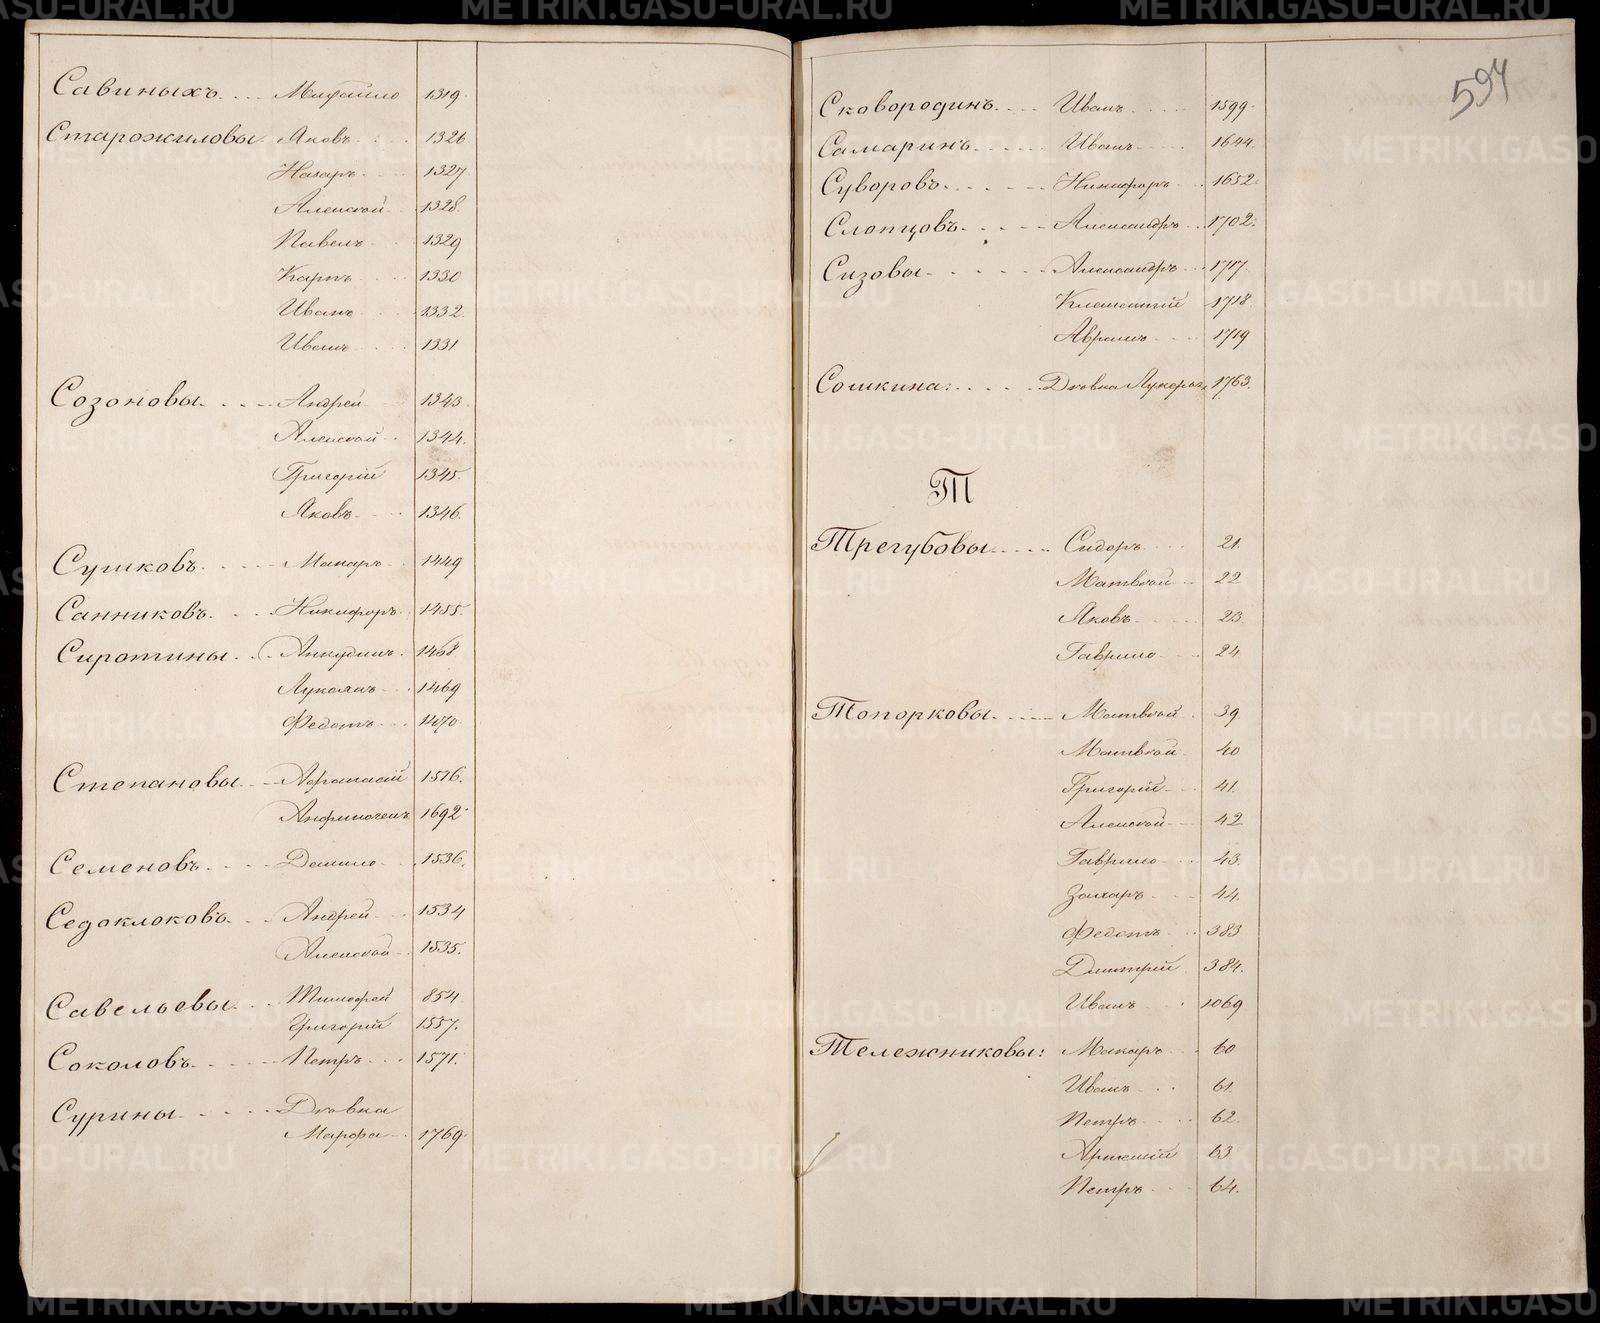 Савиныхъ.... Михайло 1319.
Старожиловы. Яковъ.... 1326.
Назаръ.... 1327
Алексѣй.. 1328.
Павелъ... 1329
Карпъ.... 1330
Иванъ.... 1332.
Иванъ.... 1331.
Созоновы.... Андрей 1343.
Алексѣй.. 1344.
Григорій 1345.
Яковъ... 1346.
Сушковъ..... Макаръ.. 1449
Санниковъ.... Никифоръ.. 1455.
Сиротины... Анкудинъ. 1468
Лукоянъ... 1469
Федотъ... 1470.
Степановы... Афанасій 1526.
Анфиногенъ 1692.
Семеновъ.... Данило... 1536.
Седоклоковъ... Андрей... 1534
Алексѣй.. 1535.
Савельевы.... Тимофей 854.
Григорій 1557.
Соколовъ..... Петръ... 1571.
Сурины..... Дѣвка
Марфа.. 1769.
594
Сковородинъ.... Иванъ.... 1599.
Самаринъ..... Иванъ.... 1644.
Суворовъ..... Никифоръ.. 1652.
Слопцовъ..... Александръ.. 1702.
Сизовы...... Александръ... 1717.
Климентій 1718.
Авраамъ.... 1719
Сошкина:.... Дѣвка Лукерья, 1763.
Т
Трегубовы.... Сидоръ.... 21.
Матвѣй... 22
Яковъ..... 23.
Гаврило.... 24.
Топорковы..... Матвѣй. 39.
Матвѣй. 40
Григорій... 41.
Алексѣй... 42
Гаврило... 43.
Захаръ.... 44.
Федотъ... 383
Дмитрій. 384.
Иванъ... 1069
Тележниковы: Макаръ... 60
Иванъ... 61.
Петръ.... 62.
Арсеній 63
Петръ.... 64.
METRIKI.GASO-URAL.RU